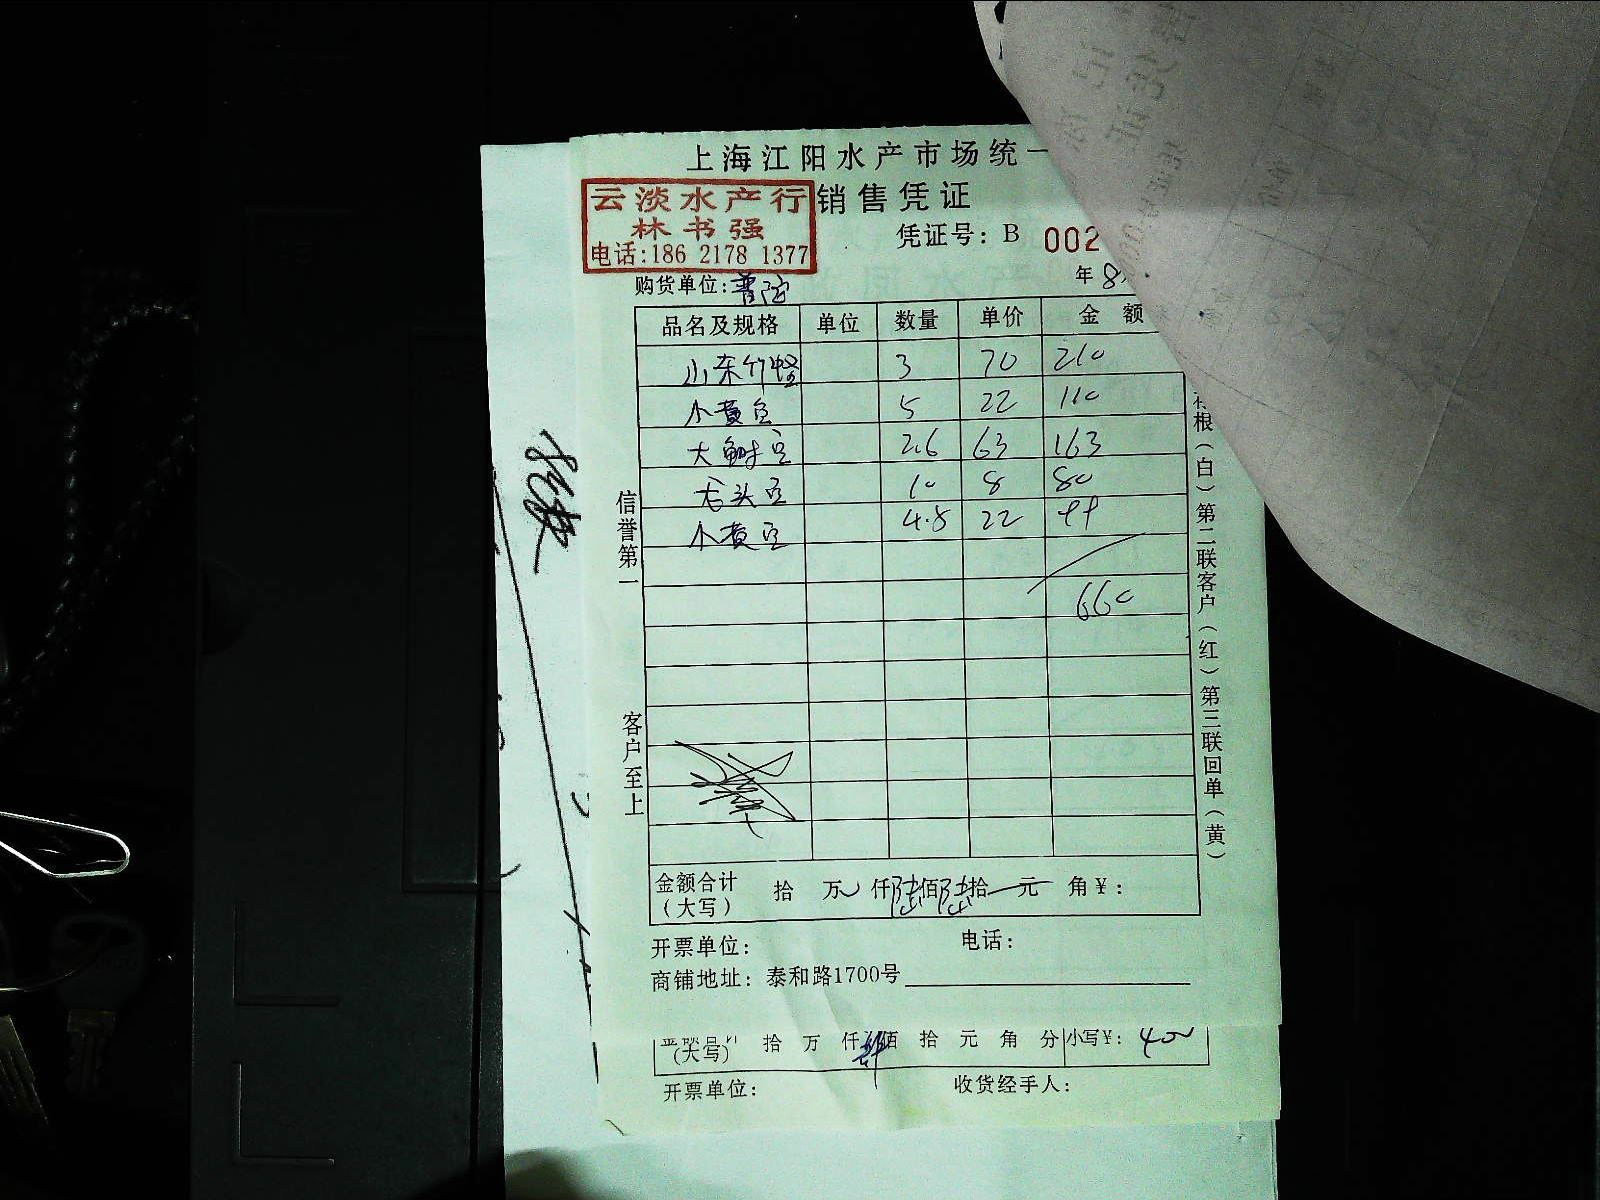 上海江阳水产市场统一
云淡水产行 销售凭证
林书强
电话:186 2178 1377
凭证号: B 002
购货单位: 普陀 年 8
品名及规格 单位 数量 单价 金额
山东竹蛏 3 70 210
小黄鱼 5 22 110
大鲥豆 2.6 63 163
舌头豆 10 8 80
小黄豆 4.8 22
660
信誉第一
客户至上
根(白)第二联客户(红)第三联回单(黄)
金额合计(大写) 拾 万 仟陆佰陆拾 元 角 ¥:
开票单位: 电话:
商铺地址: 泰和路1700号
(大写) 拾 万 仟肆佰 拾 元 角 分 小写¥: 400
开票单位: 收货经手人: